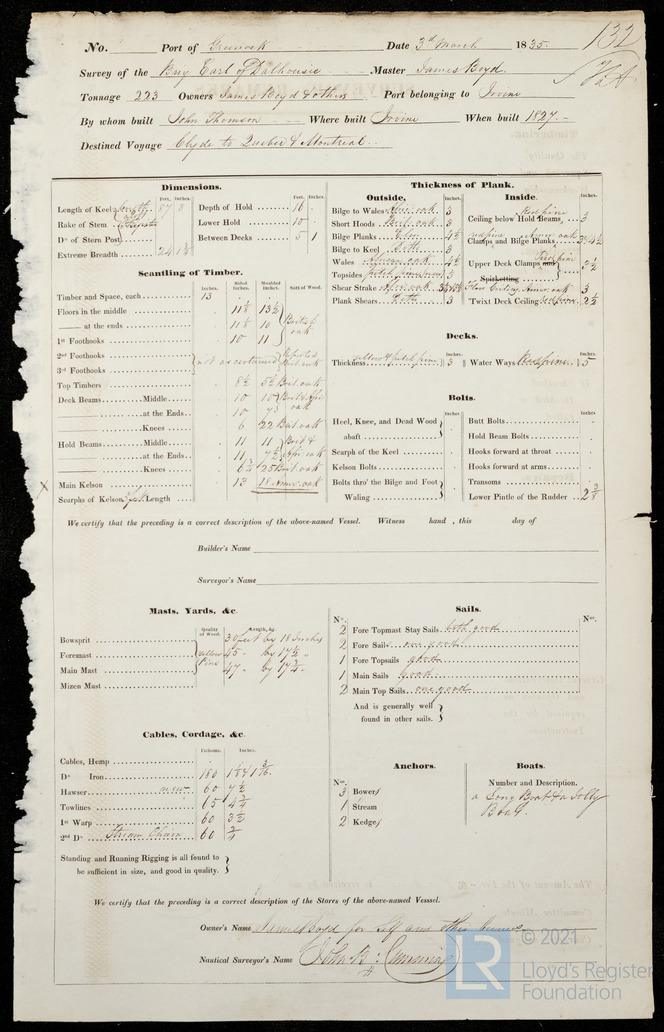 132
No. Port of Greenock Date 3rd March 1835.
Survey of the Brig Earl of Dalhousie Master James Boyd.
Tonnage 223 Owners James Boyd & others Port belonging to Irvine
By whom built John Thomson Where built Irvine When built 1827
Destined Voyage Clyde to Quebec & Montreal
Dimensions.
Feet. Inches. Feet. Inches.
Length of Keel 87 3 Depth of Hold 16
Rake of Stem Lower Hold 10
Do of Stern Post Between Decks 5 1
Extreme Breadth 24 1½
Scantling of Timber.
Inches. Sided Inches. Moulded Inches. Sort of Wood.
Timber and Space, each 13
Floors in the middle 11½ 13½
—— at the ends 11½ 10 British oak
1st Foothooks 10 11
2nd Foothooks not ascertained
3rd Foothooks
Top Timbers 8½ 5½ Brit. oak
Deck Beams Middle 10 10
—— at the Ends 10 7½ oak
—— Knees 6 22 Brit. oak
Hold Beams Middle 11 11 Brit &
—— at the Ends 11 7½ Afri. oak
—— Knees 6½ 25 Brit. oak
Main Kelson 13 18 Amer. oak
Scarphs of Kelson Length
Thickness of Plank.
Outside. Inches. Inside. Inches.
Bilge to Wales Amr. oak 3 Ceiling below Hold Beams Red pine 3
Short Hoods Brit. oak 3
Bilge Planks Elm 4½ Clamps and Bilge Planks
Bilge to Keel 3
Wales 4½ Upper Deck Clamps Red pine 3½
Topsides pitch pine 3 Spirketting
Shear Strake 3
Plank Shears 3 'Twixt Deck Ceiling red pine 2½
Decks.
Thickness yellow & pitch pine 3 Water Ways Red pine 5
Bolts.
Inches. Inches.
Heel, Knee, and Dead Wood abaft Butt Bolts
Hold Beam Bolts
Scarph of the Keel Hooks forward at throat
Kelson Bolts Hooks forward at arms
Bolts thro' the Bilge and Foot Waling Transoms
Lower Pintle of the Rudder 2⅜
We certify that the preceding is a correct description of the above-named Vessel. Witness hand, this day of
Builder's Name
Surveyor's Name
Masts, Yards, &c.
Quality of Wood. Length, &c.
Bowsprit 30 feet by 18 Inches
Foremast yellow pine 45 by 17½
Main Mast 47 by 17¾
Mizen Mast
Sails.
No. Nos.
2 Fore Topmast Stay Sails both good
2 Fore Sails one good
1 Fore Topsails good
1 Main Sails good
2 Main Top Sails one good
And is generally well found in other sails.
Cables, Cordage, &c.
Fathoms. Inches.
Cables, Hemp
Do Iron 180
Hawser new 60 7½
Towlines 65 4½
1st Warp 60 3½
2nd Do Stream Chain 60 ¾
Standing and Running Rigging is all found to be sufficient in size, and good in quality.
Anchors.
Nos.
3 Bower
1 Stream
2 Kedge
Boats.
Number and Description.
a Long Boat & a Jolly
Boat.
We certify that the preceding is a correct description of the Stores of the above-named Vesssel.
Owner's Name James Boyd for self and other owners
Nautical Surveyor's Name John B: Cumming
© 2021
LR
Lloyd's Register
Foundation